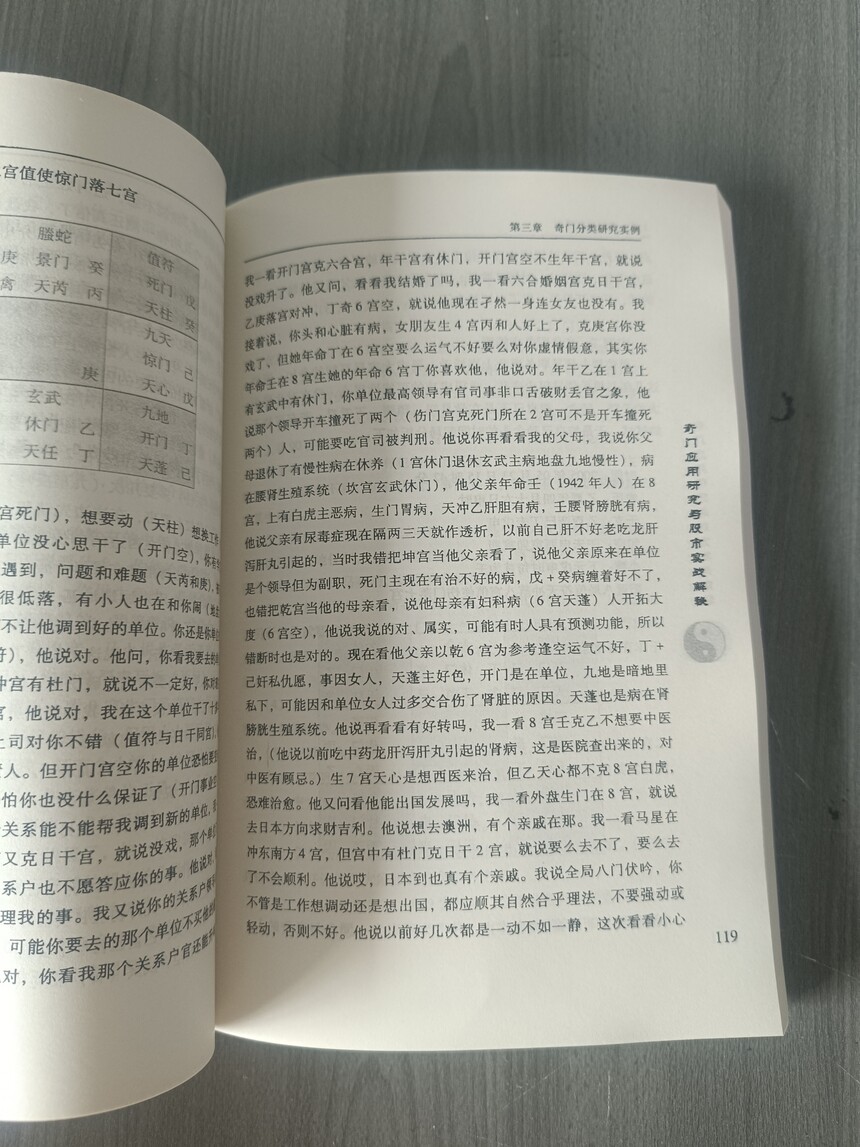 宫值使惊门落七宫
螣蛇
值符
庚 景门 癸
死门 戊
禽 天芮 丙
天柱 癸
九天
惊门 己
庚
天心 戊
玄武
九地
休门 乙
开门 丁
天任 丁
天蓬 己
宫死门），想要动（天柱）想换工作
单位没心思干了（开门空），你有
遇到，问题和难题（天芮和庚），
很低落，有小人也在和你闹
不让他调到好的单位。你还是你单
符），他说对。他问，你看我要去的
冲宫有杜门，就说不一定好，你对
宫，他说对，我在这个单位干了十
上司对你不错（值符与日干同宫），
人。但开门宫空你的单位恐怕要
怕你也没什么保证了（开门事业
关系能不能帮我调到新的单位，
又克日干宫，就说没戏，那个单
系户也不愿答应你的事。他说对，
理我的事。我又说你的关系户
可能你要去的那个单位不买他
对，你看我那个关系户官还能
第三章 奇门分类研究实例
我一看开门宫克六合宫，年干宫有休门，开门宫空不生年干宫，就说
没戏升了。他又问，看看我结婚了吗，我一看六合婚姻宫克日干宫，
乙庚落宫对冲，丁奇6宫空，就说他现在孑然一身连女友也没有。我
接着说，你头和心脏有病，女朋友生4宫丙和人好上了，克庚宫你没
戏了，但她年命丁在6宫空要么运气不好要么对你虚情假意，其实你
年命壬在8宫生她的年命6宫丁你喜欢他，他说对。年干乙在1宫上
有玄武中有休门，你单位最高领导有官司事非口舌破财丢官之象，他
说那个领导开车撞死了两个（伤门宫克死门所在2宫可不是开车撞死
两个）人，可能要吃官司被判刑。他说你再看看我的父母，我说你父
母退休了有慢性病在休养（1宫休门退休玄武主病地盘九地慢性），病
在腰肾生殖系统（坎宫玄武休门），他父亲年命壬（1942年人）在8
宫，上有白虎主恶病，生门胃病，天冲乙肝胆有病，壬腰肾膀胱有病，
他说父亲有尿毒症现在隔两三天就作透析，以前自己肝不好老吃龙肝
泻肝丸引起的，当时我错把坤宫当他父亲看了，说他父亲原来在单位
是个领导但为副职，死门主现在有治不好的病，戊+癸病缠着好不了，
也错把乾宫当他的母亲看，说他母亲有妇科病（6宫天蓬）人开拓大
度（6宫空），他说我说的对、属实，可能有时人具有预测功能，所以
错断时也是对的。现在看他父亲以乾6宫为参考逢空运气不好，丁+
己奸私仇愿，事因女人，天蓬主好色，开门是在单位，九地是暗地里
私下，可能因和单位女人过多交合伤了肾脏的原因。天蓬也是病在肾
膀胱生殖系统。他说再看看有好转吗，我一看8宫壬克乙不想要中医
治，（他说以前吃中药龙肝泻肝丸引起的肾病，这是医院查出来的，对
中医有顾忌。）生7宫天心是想西医来治，但乙天心都不克8宫白虎，
恐难治愈。他又问看他能出国发展吗，我一看外盘生门在8宫，就说
去日本方向求财吉利。他说想去澳洲，有个亲戚在那。我一看马星在
冲东南方4宫，但宫中有杜门克日干2宫，就说要么去不了，要么去
了不会顺利。他说哎，日本到也真有个亲戚。我说全局八门伏吟，你
不管是工作想调动还是想出国，都应顺其自然合乎理法，不要强动或
轻动，否则不好。他说以前好几次都是一动不如一静，这次看看小心
奇门应用研究与股市实战解秘
119